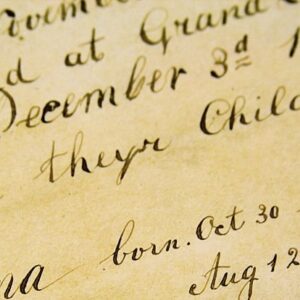 at Grand
December 3d 1
theyr Child
born. Oct 30
Aug 12